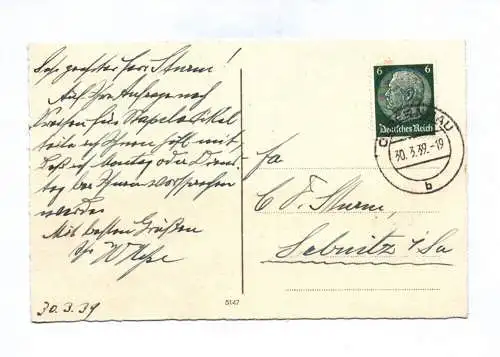 Sehr geehrter Herr Sturm!
Auf Ihre Anfrage nach
teile ich Ihnen höfl. mit,
daß ich Montag oder Diens-
tag bei Ihnen vorsprechen
werde.
Mit besten Grüßen
Ihr
30.3.39
5147
6 6
Deutsches Reich
30.3.39.-19
b
Fa
C. F. Sturm,
Sebnitz i/Sa